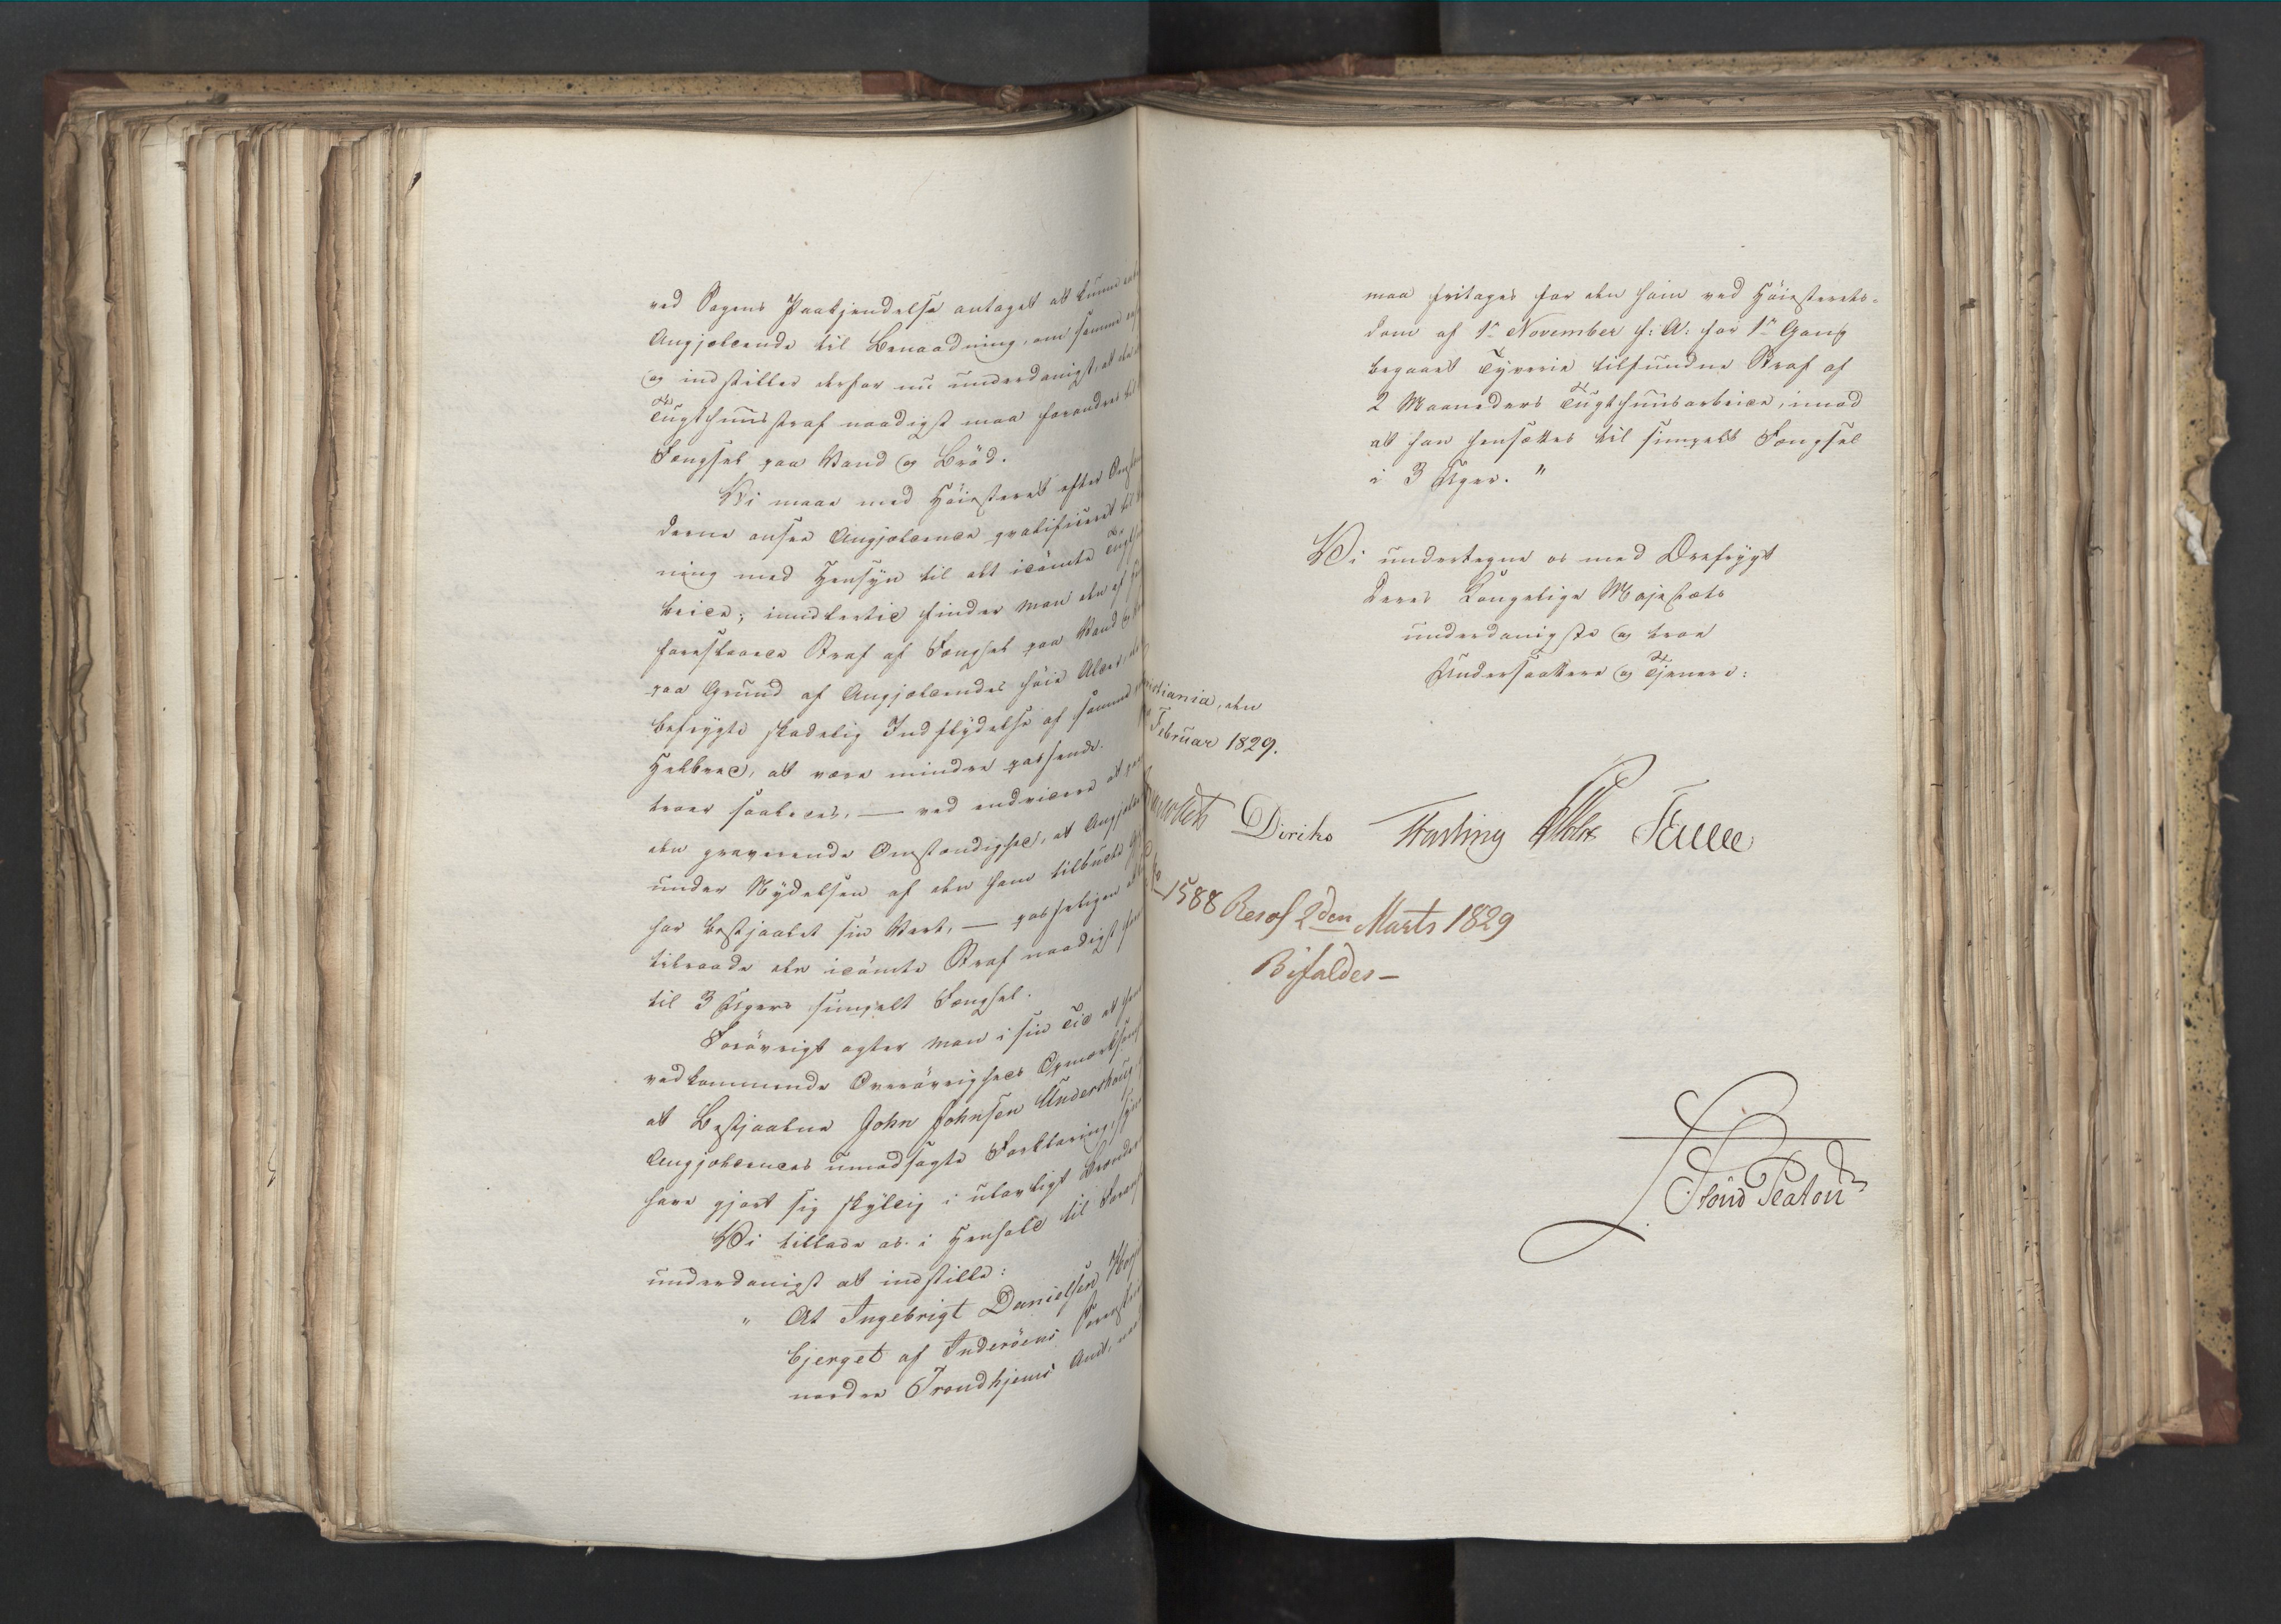 ved Sagens Paakjendelse antaget at kunne
Angjældende til Benaadning, om samme
og indstilles derfor nu underdanigst, at
Tugthuusstraf naadigst maa forandres til
Fængsel paa Vand og Bröd.
Vi maae med Höiesteret efter
derne ansee Angjældende qvalificeret til
ning med Hensyn til det idömte
beide; imidlertid finder man den af
foreslaaede Straf af Fængsel paa Vand og
paa Grund af Angjældendes höie Alder,
befrygte skadelig Indflydelse af samme
Helbred, at være mindre passende.
troer saaledes, — ved endvidere at
den graverende Omstændighed, at
under Nydelsen af den ham tilbudte
har bestjaalet sin Vert, — passeligen
tilraade den idömte Straf naadigst
til 3 Ugers simpelt Fængsel.
Forövrigt agter man i sin Tid at
vedkommende Överövrigheds
at Bestjaalne John Johnsen Undershaug
Angjældendes umodsagte Forklaring,
have gjort sig skyldig i ulovligt
Vi tillade os i Henhold til
underdanigst at indstille:
" At Ingebrigt Danielsen
bjerget af Inderöens
nordre Trondhjems Amt,
maa fritages for den ham ved Höiesterets-
dom af 1ste November f: A: for 1ste Gang
begaaet Tyverie tilfundne Straf af
2 Maaneders Tugthuusarbeide, imod
at han hensættes til simpelt Fængsel
i 3 Uger. "
Vi undertegne os med Ærefrygt
Deres Kongelige Majestæts
underdanigste og troe
Undersaattere og Tjenere:
den
Februar 1829.
Diriks
1588 Resol 2den Marts 1829
Bifaldes —